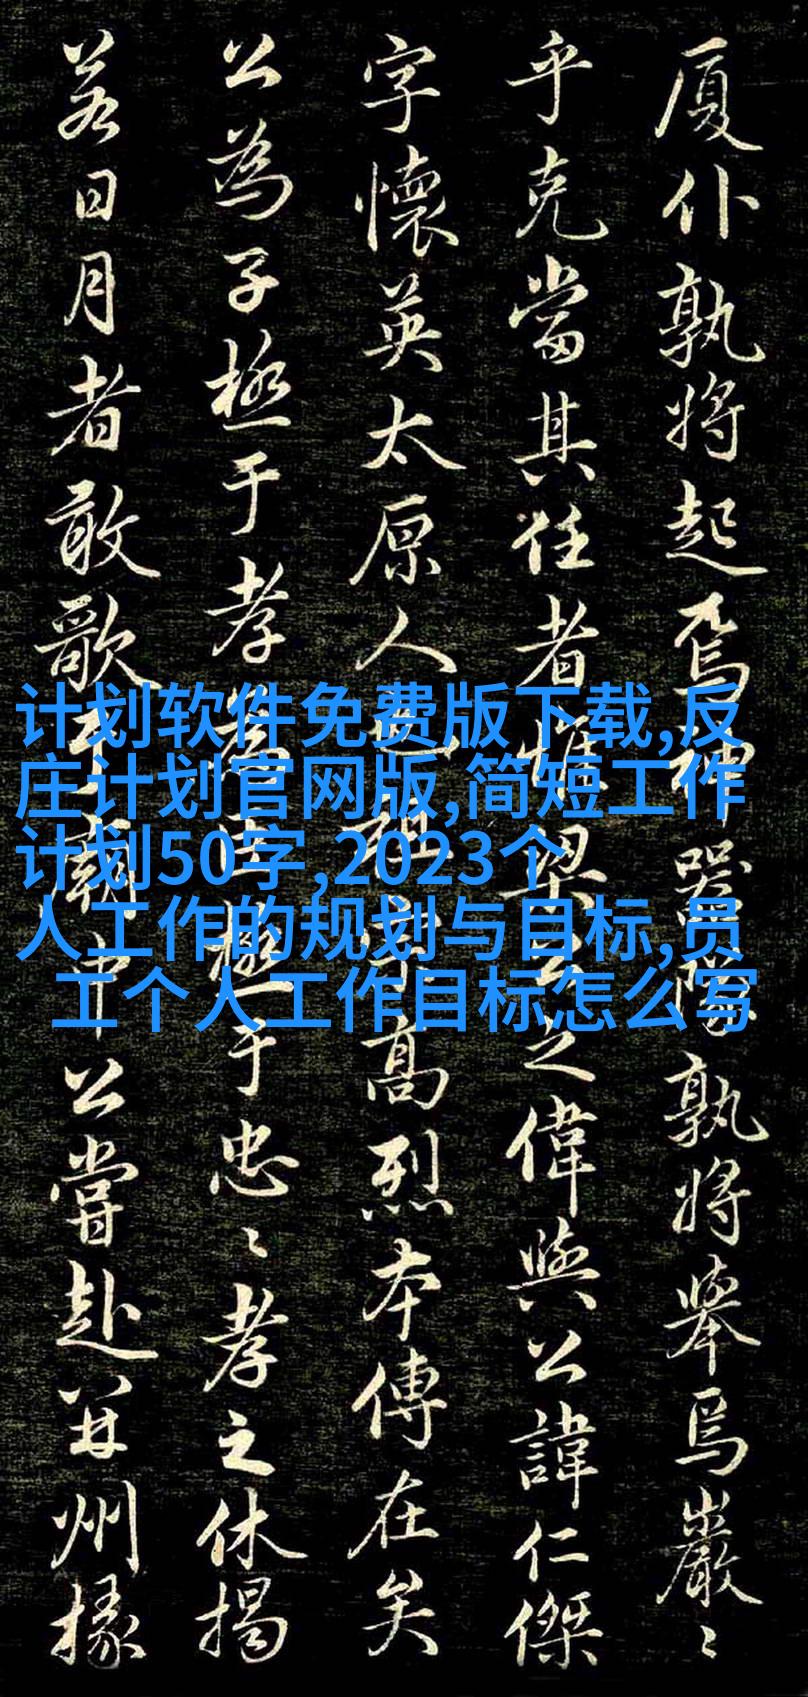 厦仆孰将起焉神器隊孰将举焉巖〻
乎克當其任者惟梁公之偉與公諱仁傑
字懷英太原人也祖宗高烈本傳在矣
公為子極于孝為臣極于忠〻孝之休揭
若日月者敢歌于廟中公嘗赴并州掾
计划软件免费版下载,反
庄计划官网版,简短工作
计划50字,2023个
人工作的规划与目标,员
工个人工作目标怎么写